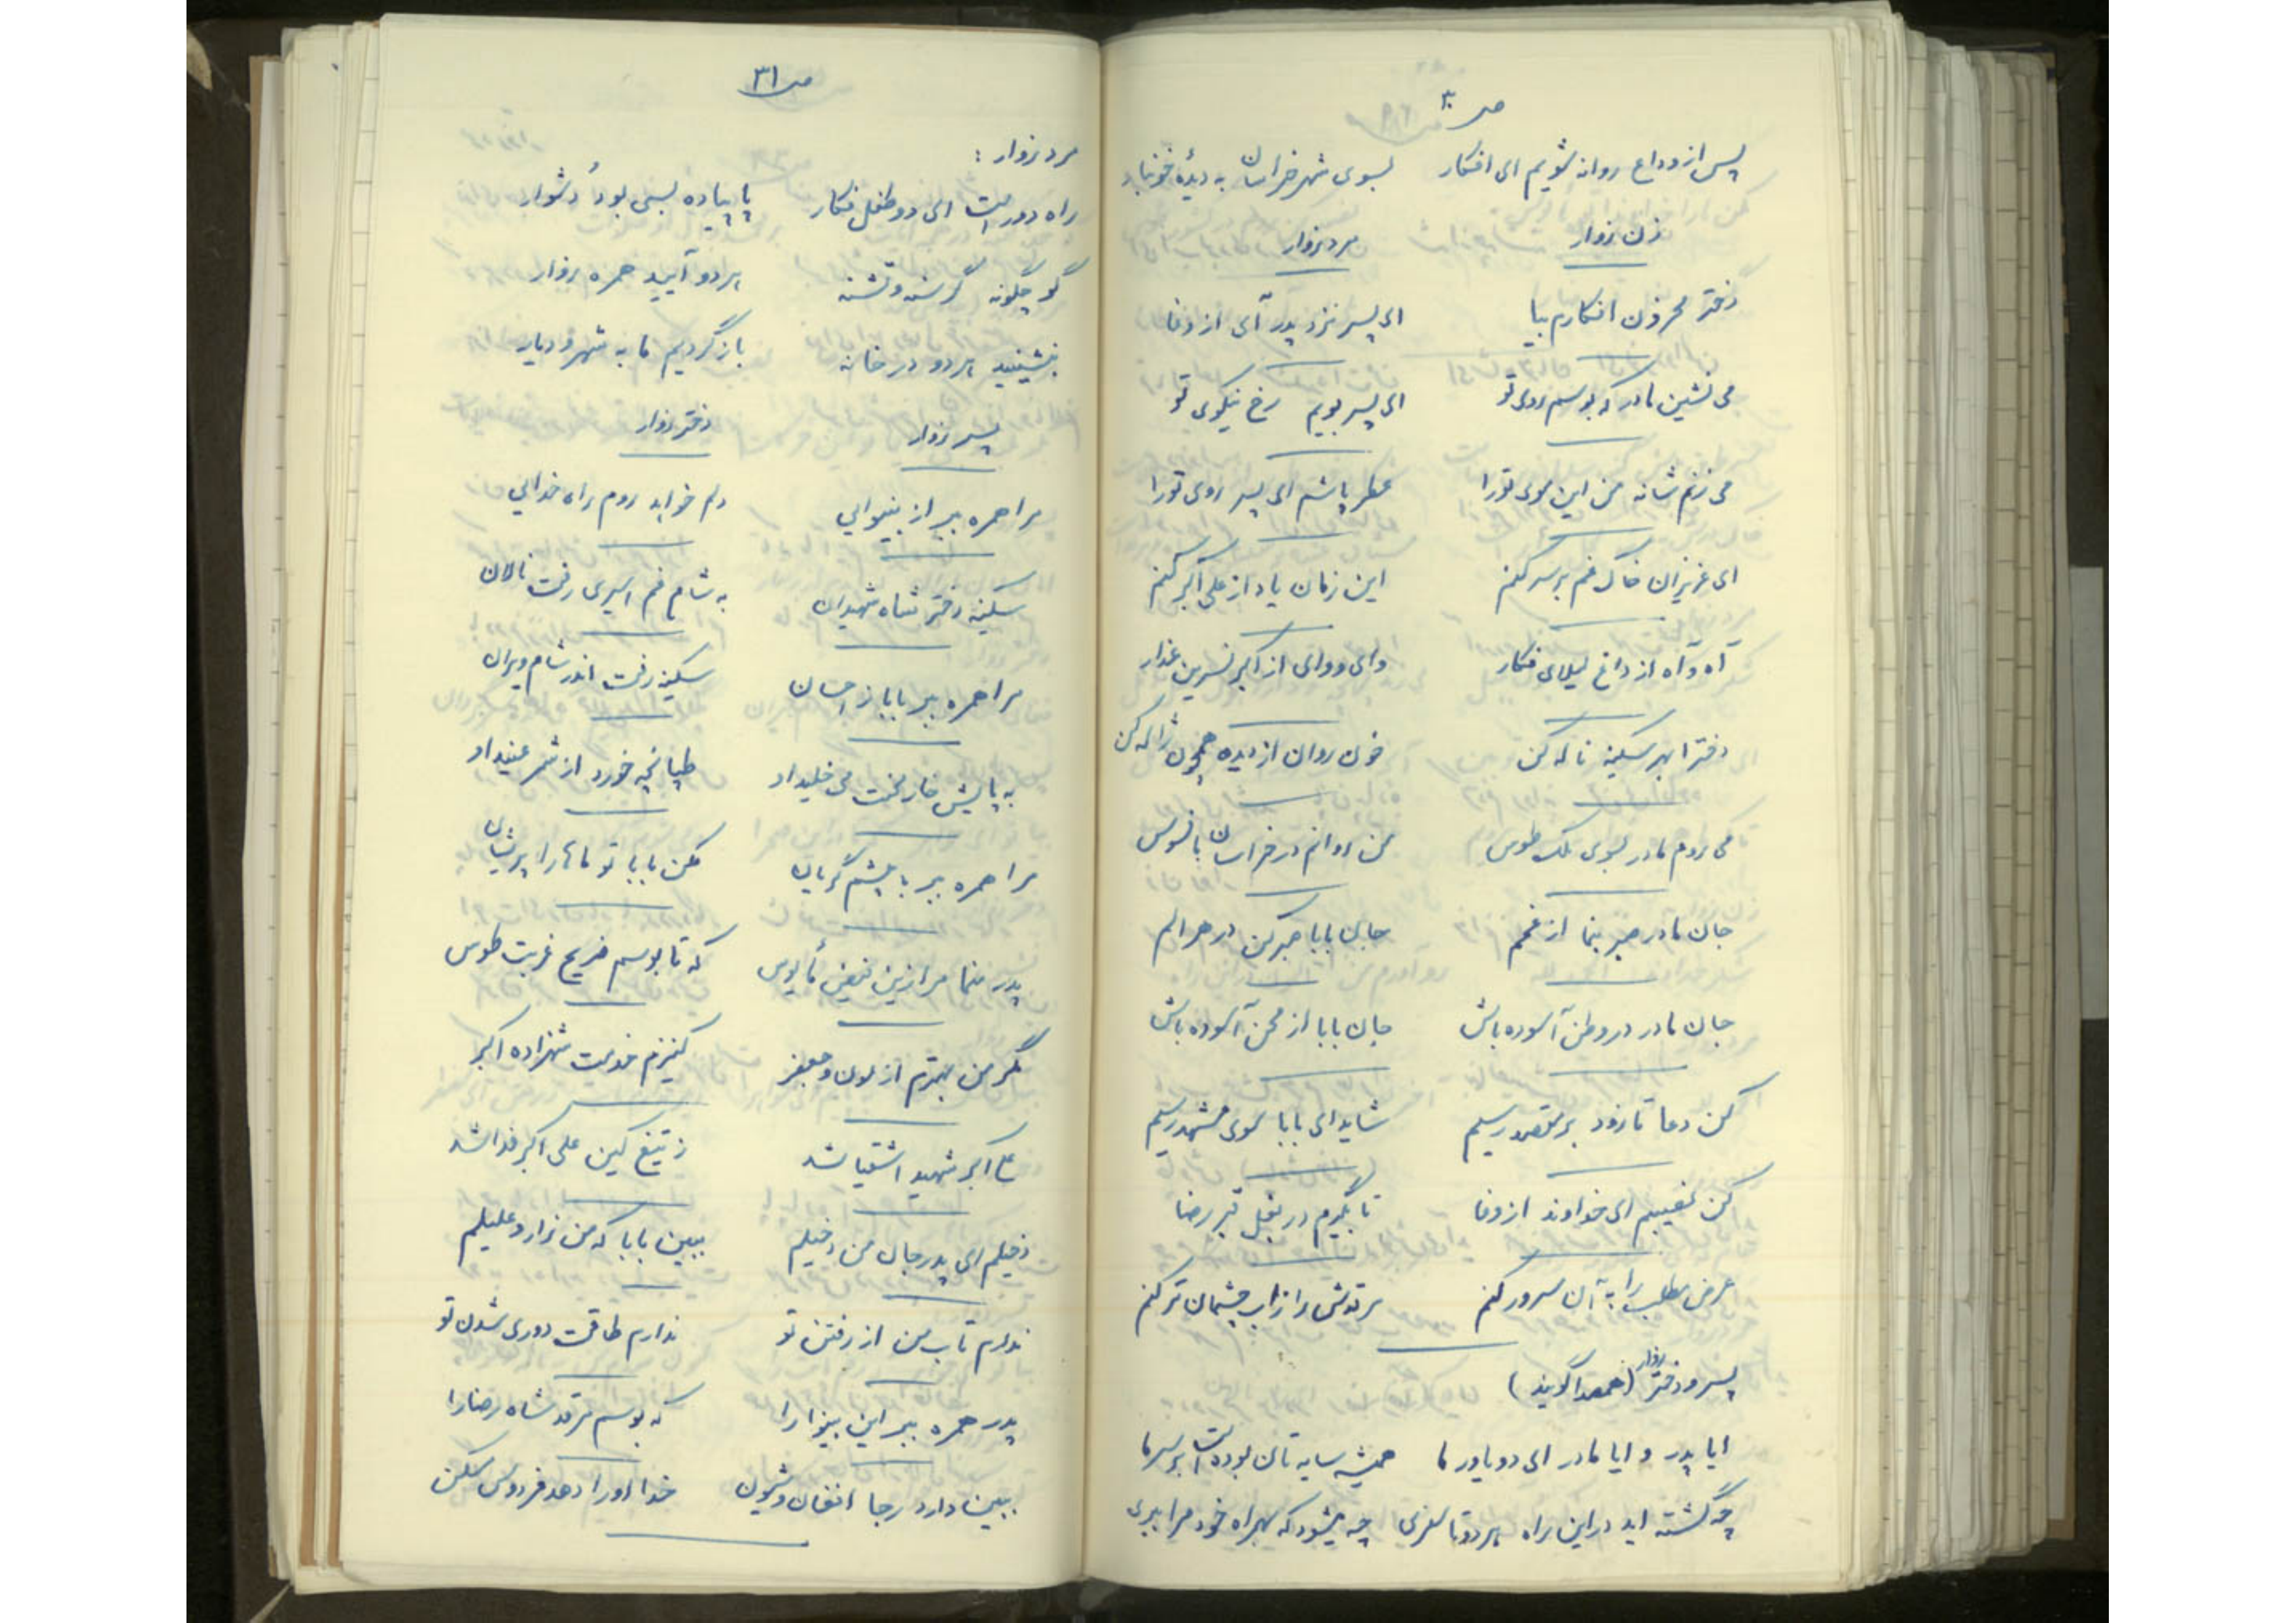 ص ۳۰
پس از وداع روانه شویم ای افکار بسوی شهر خراسان به دیدهٔ خونبار
زن زوار مرد زوار
دختر محزون افکارم بیا ای پسر نزد پدر آی از وفا
می نشین مادر که بوسم روی تو ای پسر بویم رخ نیکوی تو
می زنم شانه من این موی تورا عطر پاشم ای پسر روی تورا
ای عزیزان خاک غم برسر کنم این زمان یاد از علی اکبر کنم
آه و آه از داغ لیلای فکار وای و وای از اکبر نسرین عذار
دخترا بهر سکینه ناله کن خون روان از دیده همچون ژاله کن
می روم مادر بسوی ملک طوس من روانم در خراسان با فسوس
جان مادر صبر بنما از غمم جان بابا صبر کن در هر الم
جان مادر در وطن آسوده باش جان بابا از محن آسوده باش
کن دعا تا زود بر مقصد رسیم شاید ای بابا سوی مشهد رسیم
کن نصیبم ای خداوند از وفا تا بگیرم در بغل قبر رضا
عرض مطلب را به آن سرور کنم مرقدش را زاب چشمان تر کنم
پسر و دختر زوار (همصدا گویند)
ایا پدر و ایا مادر ای دو یاور ما همیشه سایه تان بوده است بر سر ما
چه گشته اید در این راه هر دو تا سفری چه میشود که بهمراه خود مرا ببری
ص ۳۱
مرد زوار :
راه دور است ای دو طفل فکار پا پیاده بسی بود دشوار
گو چگونه گرسنه و تشنه هر دو آیید همره زوار
بنشینید هر دو در خانه باز گردیم ما به شهر و دیار
پسر زوار دختر زوار
مرا همره ببر از بینوایی دلم خواهد روم راه خدایی
سکینه دختر شاه شهیدان به شام غم اسیری رفت نالان
مرا همره ببر بابا ز احسان سکینه رفت اندر شام ویران
به پایش خار محنت می خلیداد طپانچه خورد از شمر عنیداد
مرا همره ببر با چشم گریان مکن بابا تو ماها را پریشان
پدر منما مرا زین فیض مأیوس که تا بوسم ضریح غربت طوس
مگر من بهترم از عون و جعفر کنیزم خدمت شهزاده اکبر
علی اکبر شهید اشقیا شد ز تیغ کین علی اکبر فدا شد
دخیلم ای پدر جان من دخیلم ببین بابا که من زار و علیلم
ندارم تاب من از رفتن تو ندارم طاقت دوری شدن تو
پدر همره ببر این بینوا را که بوسم مرقد شاه رضا را
ببین دارد رجا افغان و شیون خدا اورا دهد فردوس مسکن